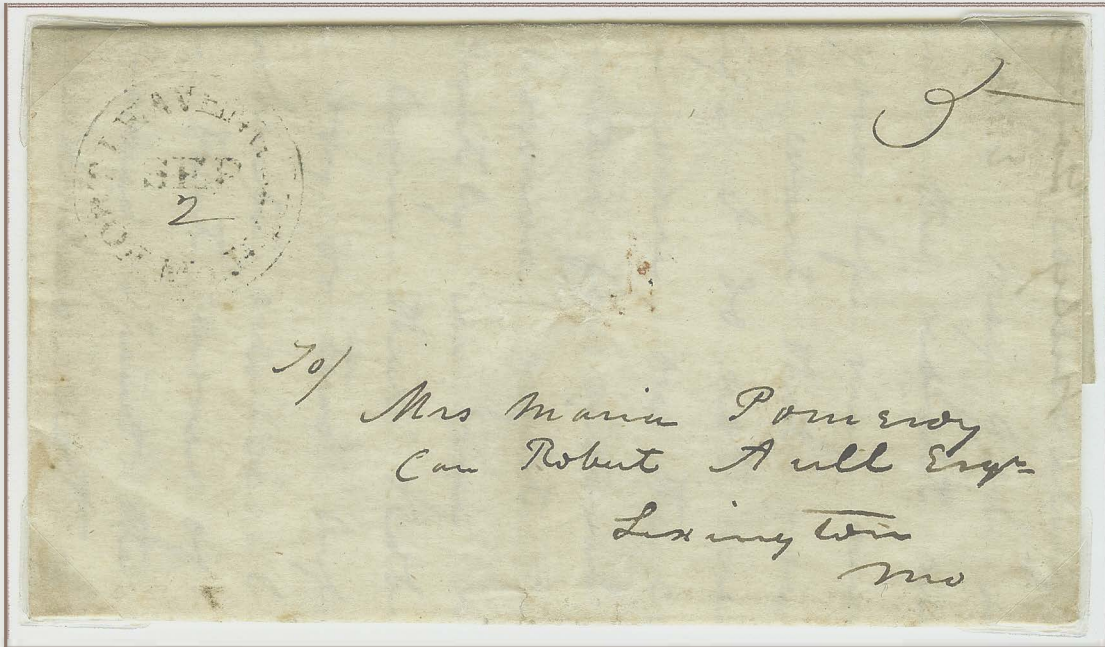 SEP
2
3
To/
Mrs Maria Pomeroy
Care Robert Aull Esqr
Lexington
Mo